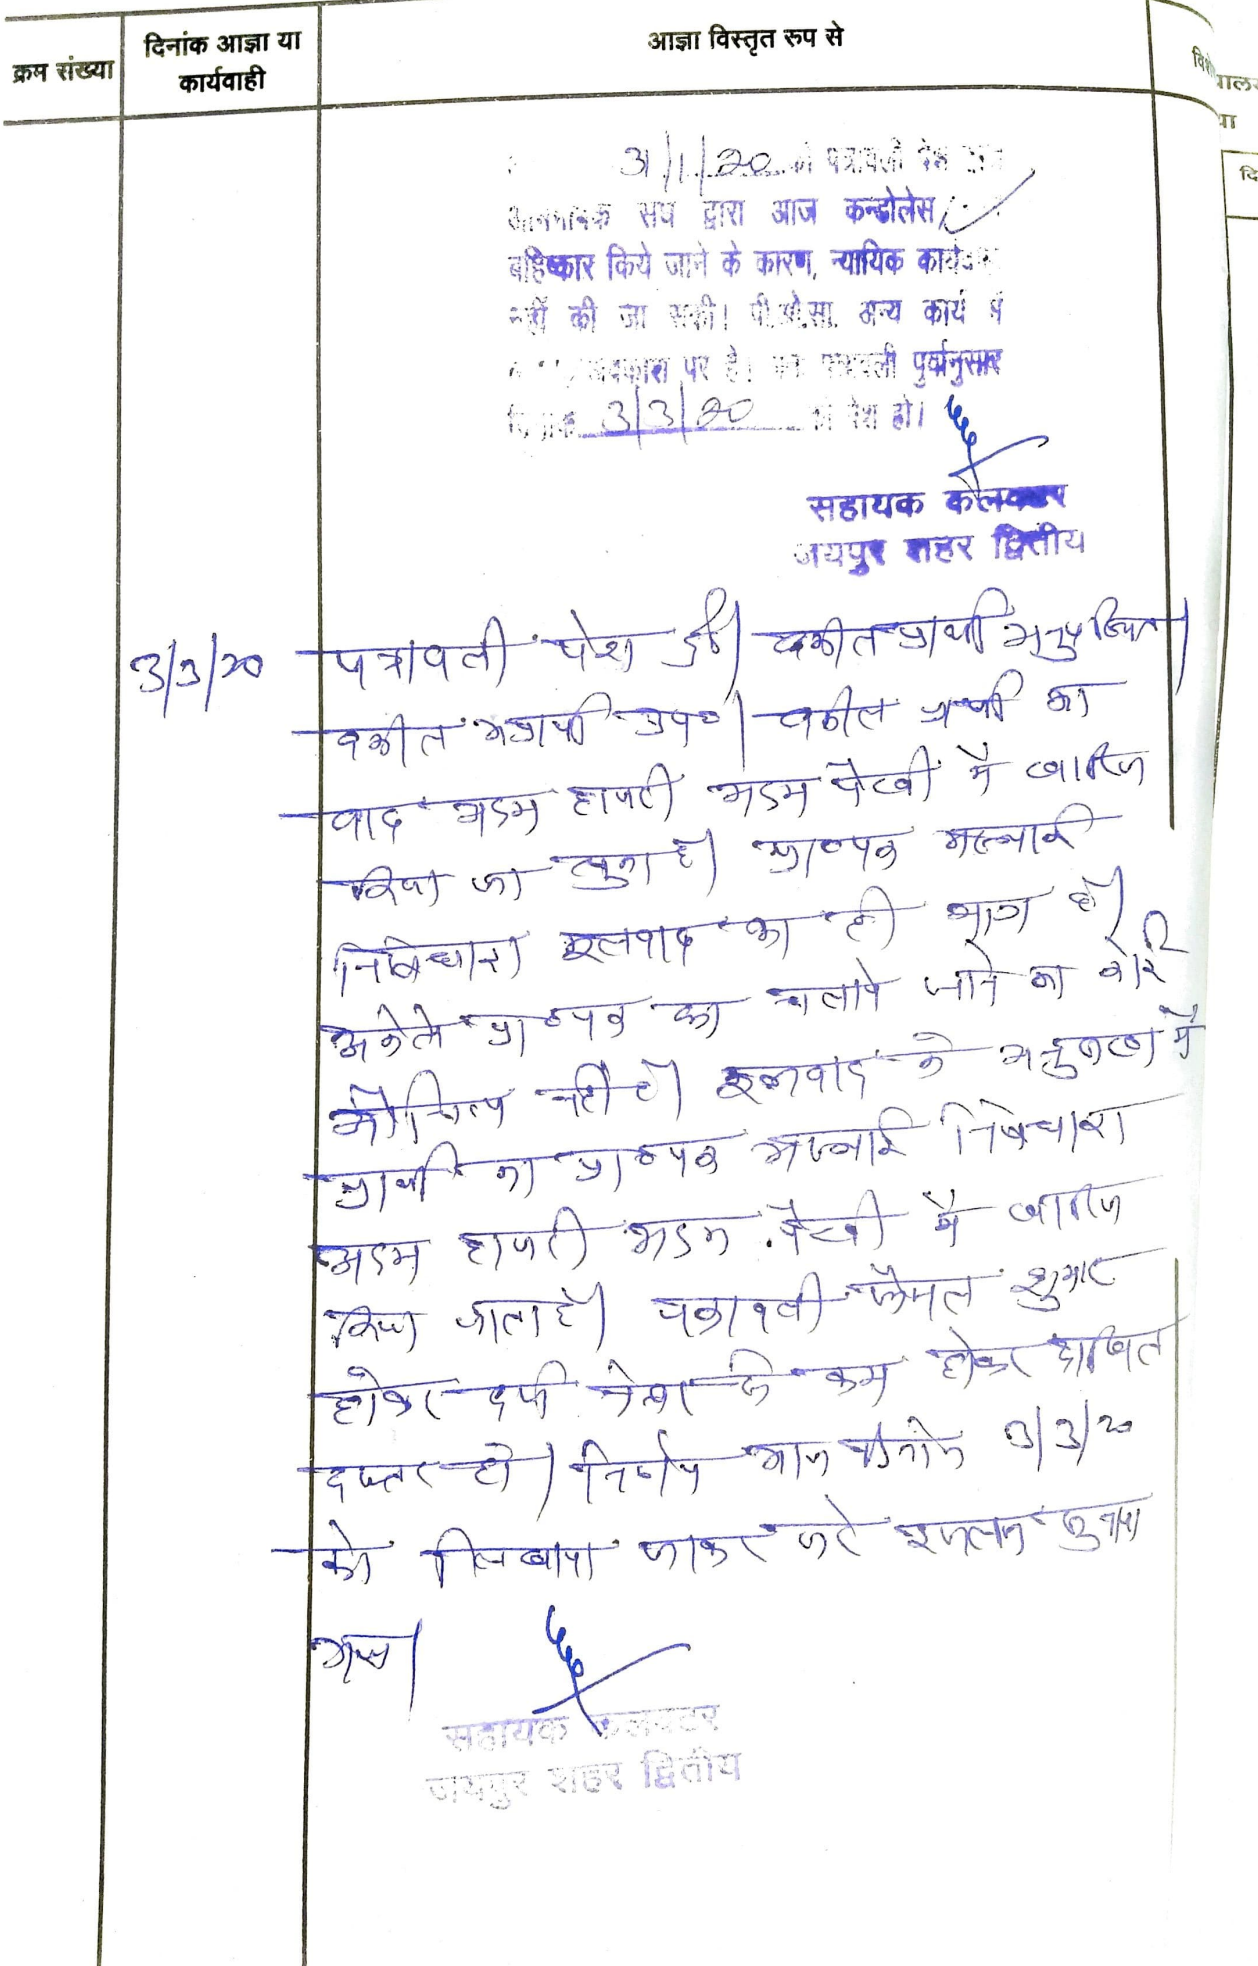 क्रम संख्या
दिनांक आज्ञा या
कार्यवाही
आज्ञा विस्तृत रुप से
31/1/20 को पत्रावली पेश
संघ द्वारा आज कन्डोलेस
बहिष्कार किये जाने के कारण, न्यायिक
नहीं की जा सकी। पी.ओ.सा. अन्य कार्य में
अवकाश पर है। पत्रावली पुर्वानुसार
दिनांक 3/3/20 को पेश हो।
सहायक कलक्टर
जयपुर शहर द्वितीय
3/3/20
पत्रावली पेश हुई। वकील प्रार्थी अनुपस्थित।
वकील अप्रार्थी उप०। वकील प्रार्थी का
वाद अदम हाजरी अदम पैरवी में खारिज
किया जा चुका है। प्रा०पत्र अस्थाई
निषेधाज्ञा मूलवाद का ही भाग है।
अकेले प्रा०पत्र का चलाये जाने का कोई
औचित्य नहीं है। मूलवाद के में
प्रार्थी का प्रा०पत्र अस्थाई निषेधाज्ञा
अदम हाजरी अदम पैरवी में खारिज
किया जाता है। पत्रावली फैसल शुमार
होकर दर्ज नम्बर से कम होकर दाखिल
दफ्तर हो। निर्णय आज दिनांक 3/3/20
को लिखाया जाकर सुनाया
गया।
सहायक कलक्टर
जयपुर शहर द्वितीय